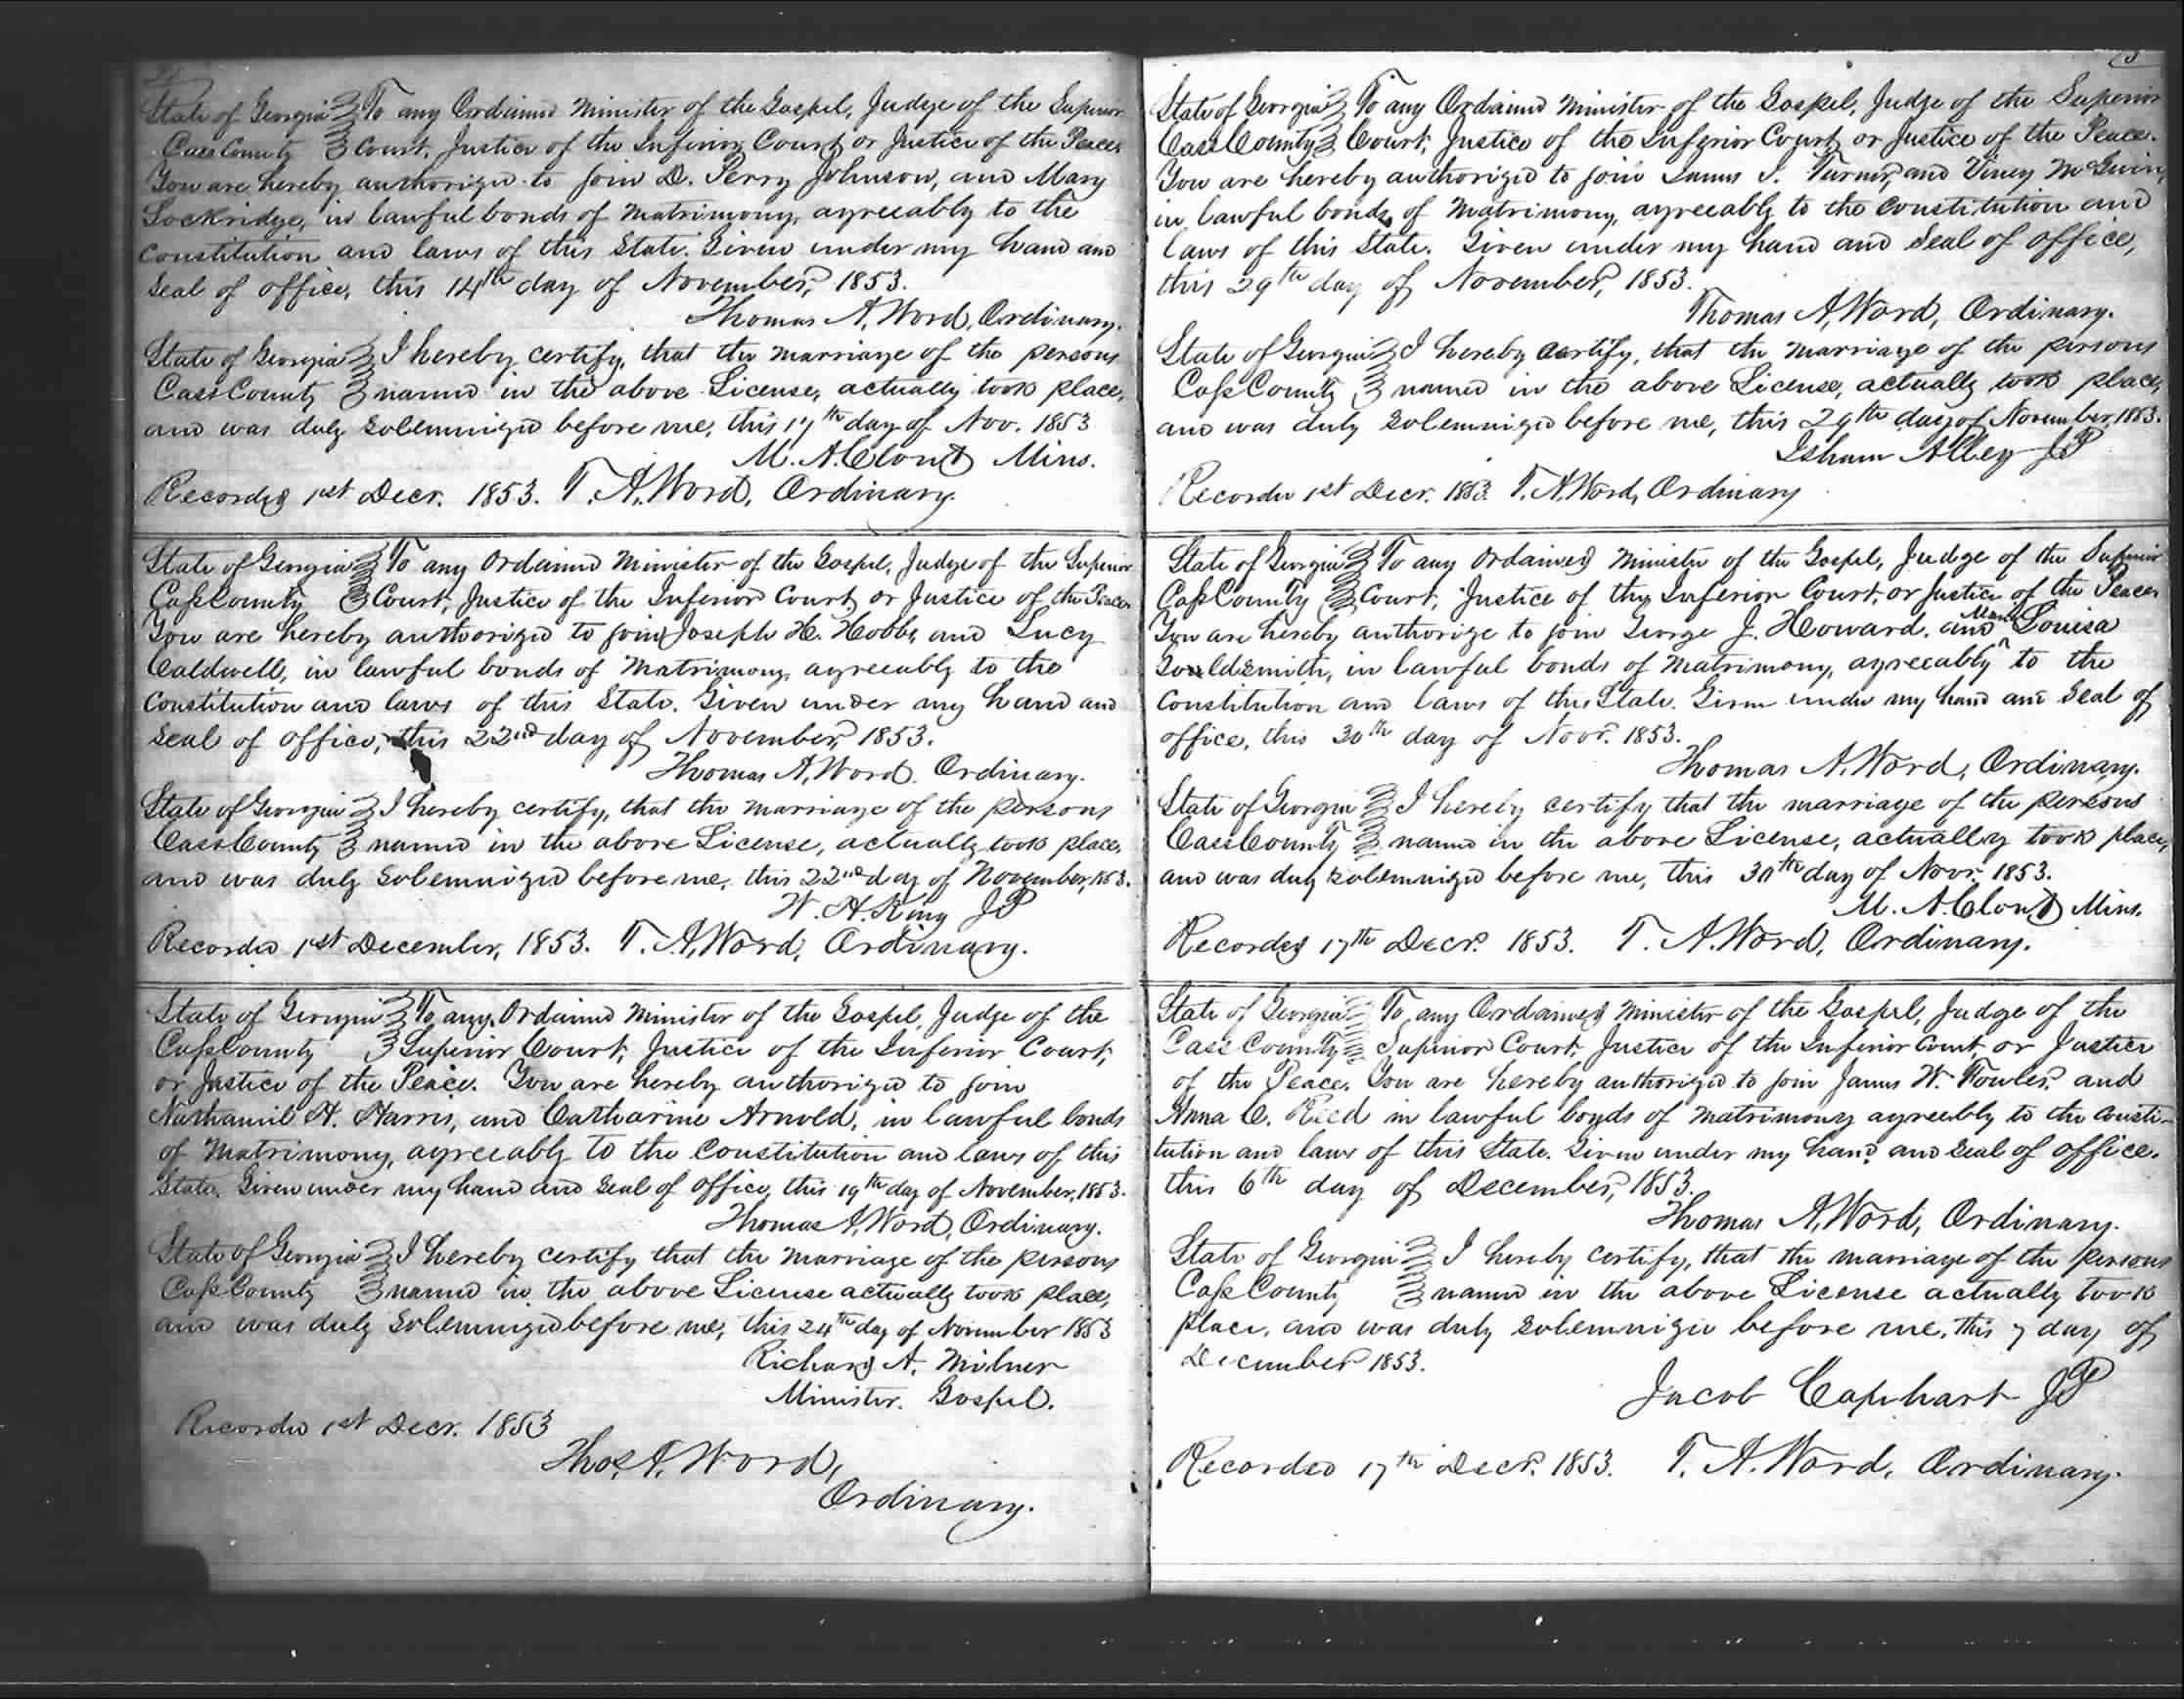 State of Georgia To any Ordained Minister of the Gospel, Judge of the Superior
Cass County Court, Justice of the Inferior Court, or Justice of the Peace
You are hereby authorized to join D. Perry Johnson, and Mary
Lockridge, in lawful bonds of Matrimony, agreeably to the
constitution and laws of this State. Given under my hand and
Seal of office, this 14th day of November, 1853.
Thomas A. Word, Ordinary.
State of Georgia I hereby certify, that the marriage of the persons
Cass County named in the above License, actually took place,
and was duly Solemnized before me, this 17th day of Nov. 1853
M. A. Clont Mins.
Recorded 1st Decr. 1853. T. A. Word, Ordinary.
State of Georgia To any Ordained Minister of the Gospel, Judge of the Superior
Cass County Court, Justice of the Inferior Court, or Justice of the Peace
You are hereby authorized to join Joseph H. Hobbs, and Lucy
Caldwell, in lawful bonds of Matrimony, agreeably to the
Constitution and laws of this State. Given under my hand and
Seal of office, this 22nd day of November, 1853.
Thomas A. Word, Ordinary.
State of Georgia I hereby certify, that the marriage of the persons
Cass County named in the above License, actually took place,
and was duly Solemnized before me, this 22nd day of November, 1853.
W. H. King JP
Recorded 1st December, 1853. T. A. Word, Ordinary.
State of Georgia To any Ordained Minister of the Gospel, Judge of the
Cass County Superior Court, Justice of the Inferior Court,
or Justice of the Peace. You are hereby authorized to join
Nathaniel H. Harris, and Catharine Arnold, in lawful bonds
of Matrimony, agreeably to the Constitution and laws of this
State. Given under my hand and Seal of office, this 19th day of November, 1853.
Thomas A. Word, Ordinary.
State of Georgia I hereby certify that the marriage of the persons
Cass County named in the above License actually took place,
and was duly Solemnized before me, this 24th day of November 1853
Richard A. Milner
Minister. Gospel.
Recorded 1st Decr. 1853
Thos. A. Word,
Ordinary.
State of Georgia To any Ordained Minister of the Gospel, Judge of the Superior
Cass County Court, Justice of the Inferior Court, or Justice of the Peace.
You are hereby authorized to join James J. Turner, and Viney McGuin,
in lawful bonds of Matrimony, agreeably to the constitution and
laws of this State. Given under my hand and Seal of office,
this 29th day of November, 1853.
Thomas A. Word, Ordinary.
State of Georgia I hereby certify, that the marriage of the persons
Cass County named in the above License, actually took place,
and was duly Solemnized before me, this 29th day of November, 1853.
Isham Alley JP
Recorded 1st Decr. 1853. T. A. Word, Ordinary
State of Georgia To any Ordained Minister of the Gospel, Judge of the Superior
Cass County Court, Justice of the Inferior Court, or Justice of the Peace
You are hereby authorize to join George J. Howard, and Maria Louisa
Gouldsmith, in lawful bonds of Matrimony, agreeably to the
Constitution and laws of this State. Given under my hand and Seal of
office, this 30th day of Novr. 1853.
Thomas A. Word, Ordinary.
State of Georgia I hereby certify that the marriage of the persons
Cass County named in the above License, actually took place,
and was duly solemnized before me, this 30th day of Novr. 1853.
M. A. Clont Mins.
Recorded 17th Decr. 1853. T. A. Word, Ordinary.
State of Georgia To any Ordained Minister of the Gospel, Judge of the
Cass County Superior Court, Justice of the Inferior Court, or Justice
of the Peace. You are hereby authorized to join James W. Fowler, and
Anna C. Reed in lawful bonds of matrimony agreeably to the consti-
tution and laws of this State. Given under my hand and seal of office.
this 6th day of December, 1853.
Thomas A. Word, Ordinary.
State of Georgia I hereby certify, that the marriage of the persons
Cass County named in the above License actually took
place, and was duly solemnized before me, this 7 day of
December 1853.
Jacob Caphart JP
Recorded 17th Decr. 1853. T. A. Word, Ordinary.